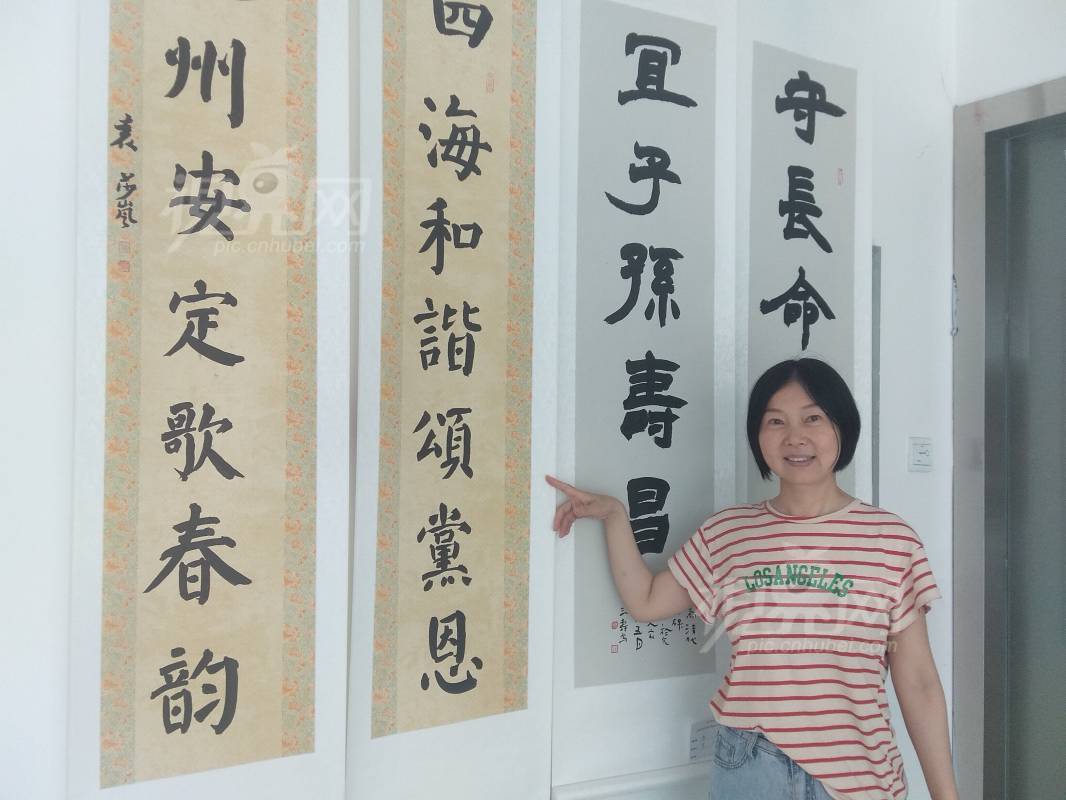 四海和諧頌黨恩
州安定歌春韵
袁莎嵐
守長命
宜子孫壽昌
LOSANGELES
视界网
pic.cnhubei.com
pic.cnhubei.com